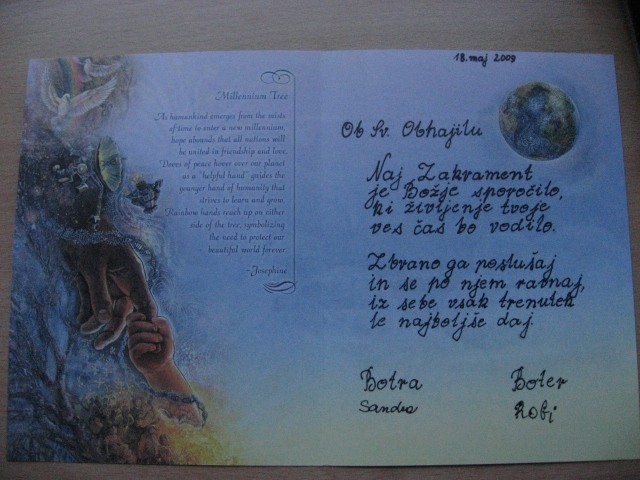 Millennium Tree
As humankind emerges from the mists
of time to enter a new millennium,
hope abounds that all nations will
be united in friendship and love.
Doves of peace hover over our planet
as a "helpful hand" guides the
younger hand of humanity that
strives to learn and grow.
Rainbow hands reach up on either
side of the tree, symbolizing
the need to protect our
beautiful world forever.
-Josephine
18. maj 2008
Ob Sv. Obhajilu
Naj Zakrament
je Božje sporočilo,
ki življenje tvoje
ves čas bo vodilo.
Zbrano ga poslušaj
in se po njem ravnaj,
iz sebe vsak trenutek
le najboljše daj.
Botra Boter
Sandra Robi